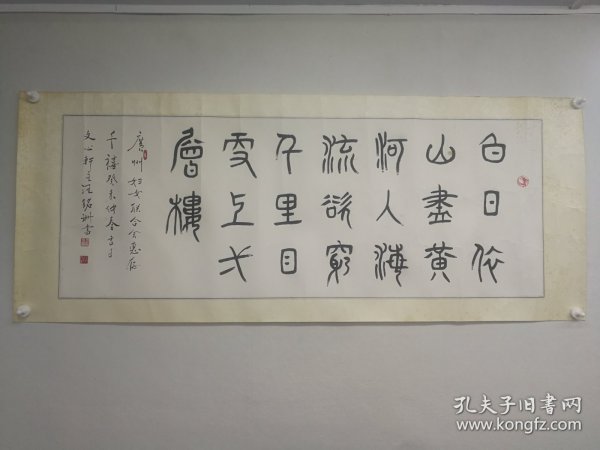 白日依
山盡黃
河入海
流欲窮
千里目
更上弌
層樓
廣州妇女联合会惠存
千禧癸未仲春書于
文心軒主
孔夫子旧书网
www.kongfz.com